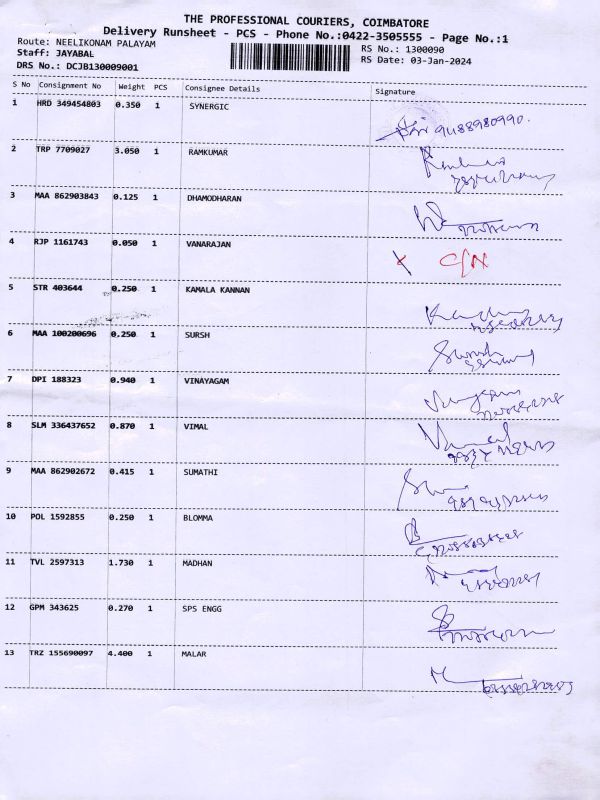 THE PROFESSIONAL COURIERS, COIMBATORE
Delivery Runsheet - PCS - Phone No.:0422-3505555 - Page No.:1
Route: NEELIKONAM PALAYAM
RS No.: 1300090
Staff: JAYABAL
RS Date: 03-Jan-2024
DRS No.: DCJB130009001
S No Consignment No Weight PCS Consignee Details Signature
1 HRD 349454803 0.350 1 SYNERGIC
9488980990.
2 TRP 7709027 3.050 1 RAMKUMAR
3 MAA 862903843 0.125 1 DHAMODHARAN
4 RJP 1161743 0.050 1 VANARAJAN
X C/N
5 STR 403644 0.250 1 KAMALA KANNAN
6 MAA 100200696 0.250 1 SURSH
7 DPI 188323 0.940 1 VINAYAGAM
8 SLM 336437652 0.870 1 VIMAL
9 MAA 862902672 0.415 1 SUMATHI
10 POL 1592855 0.250 1 BLOMMA
11 TVL 2597313 1.730 1 MADHAN
12 GPM 343625 0.270 1 SPS ENGG
13 TRZ 155690097 4.400 1 MALAR